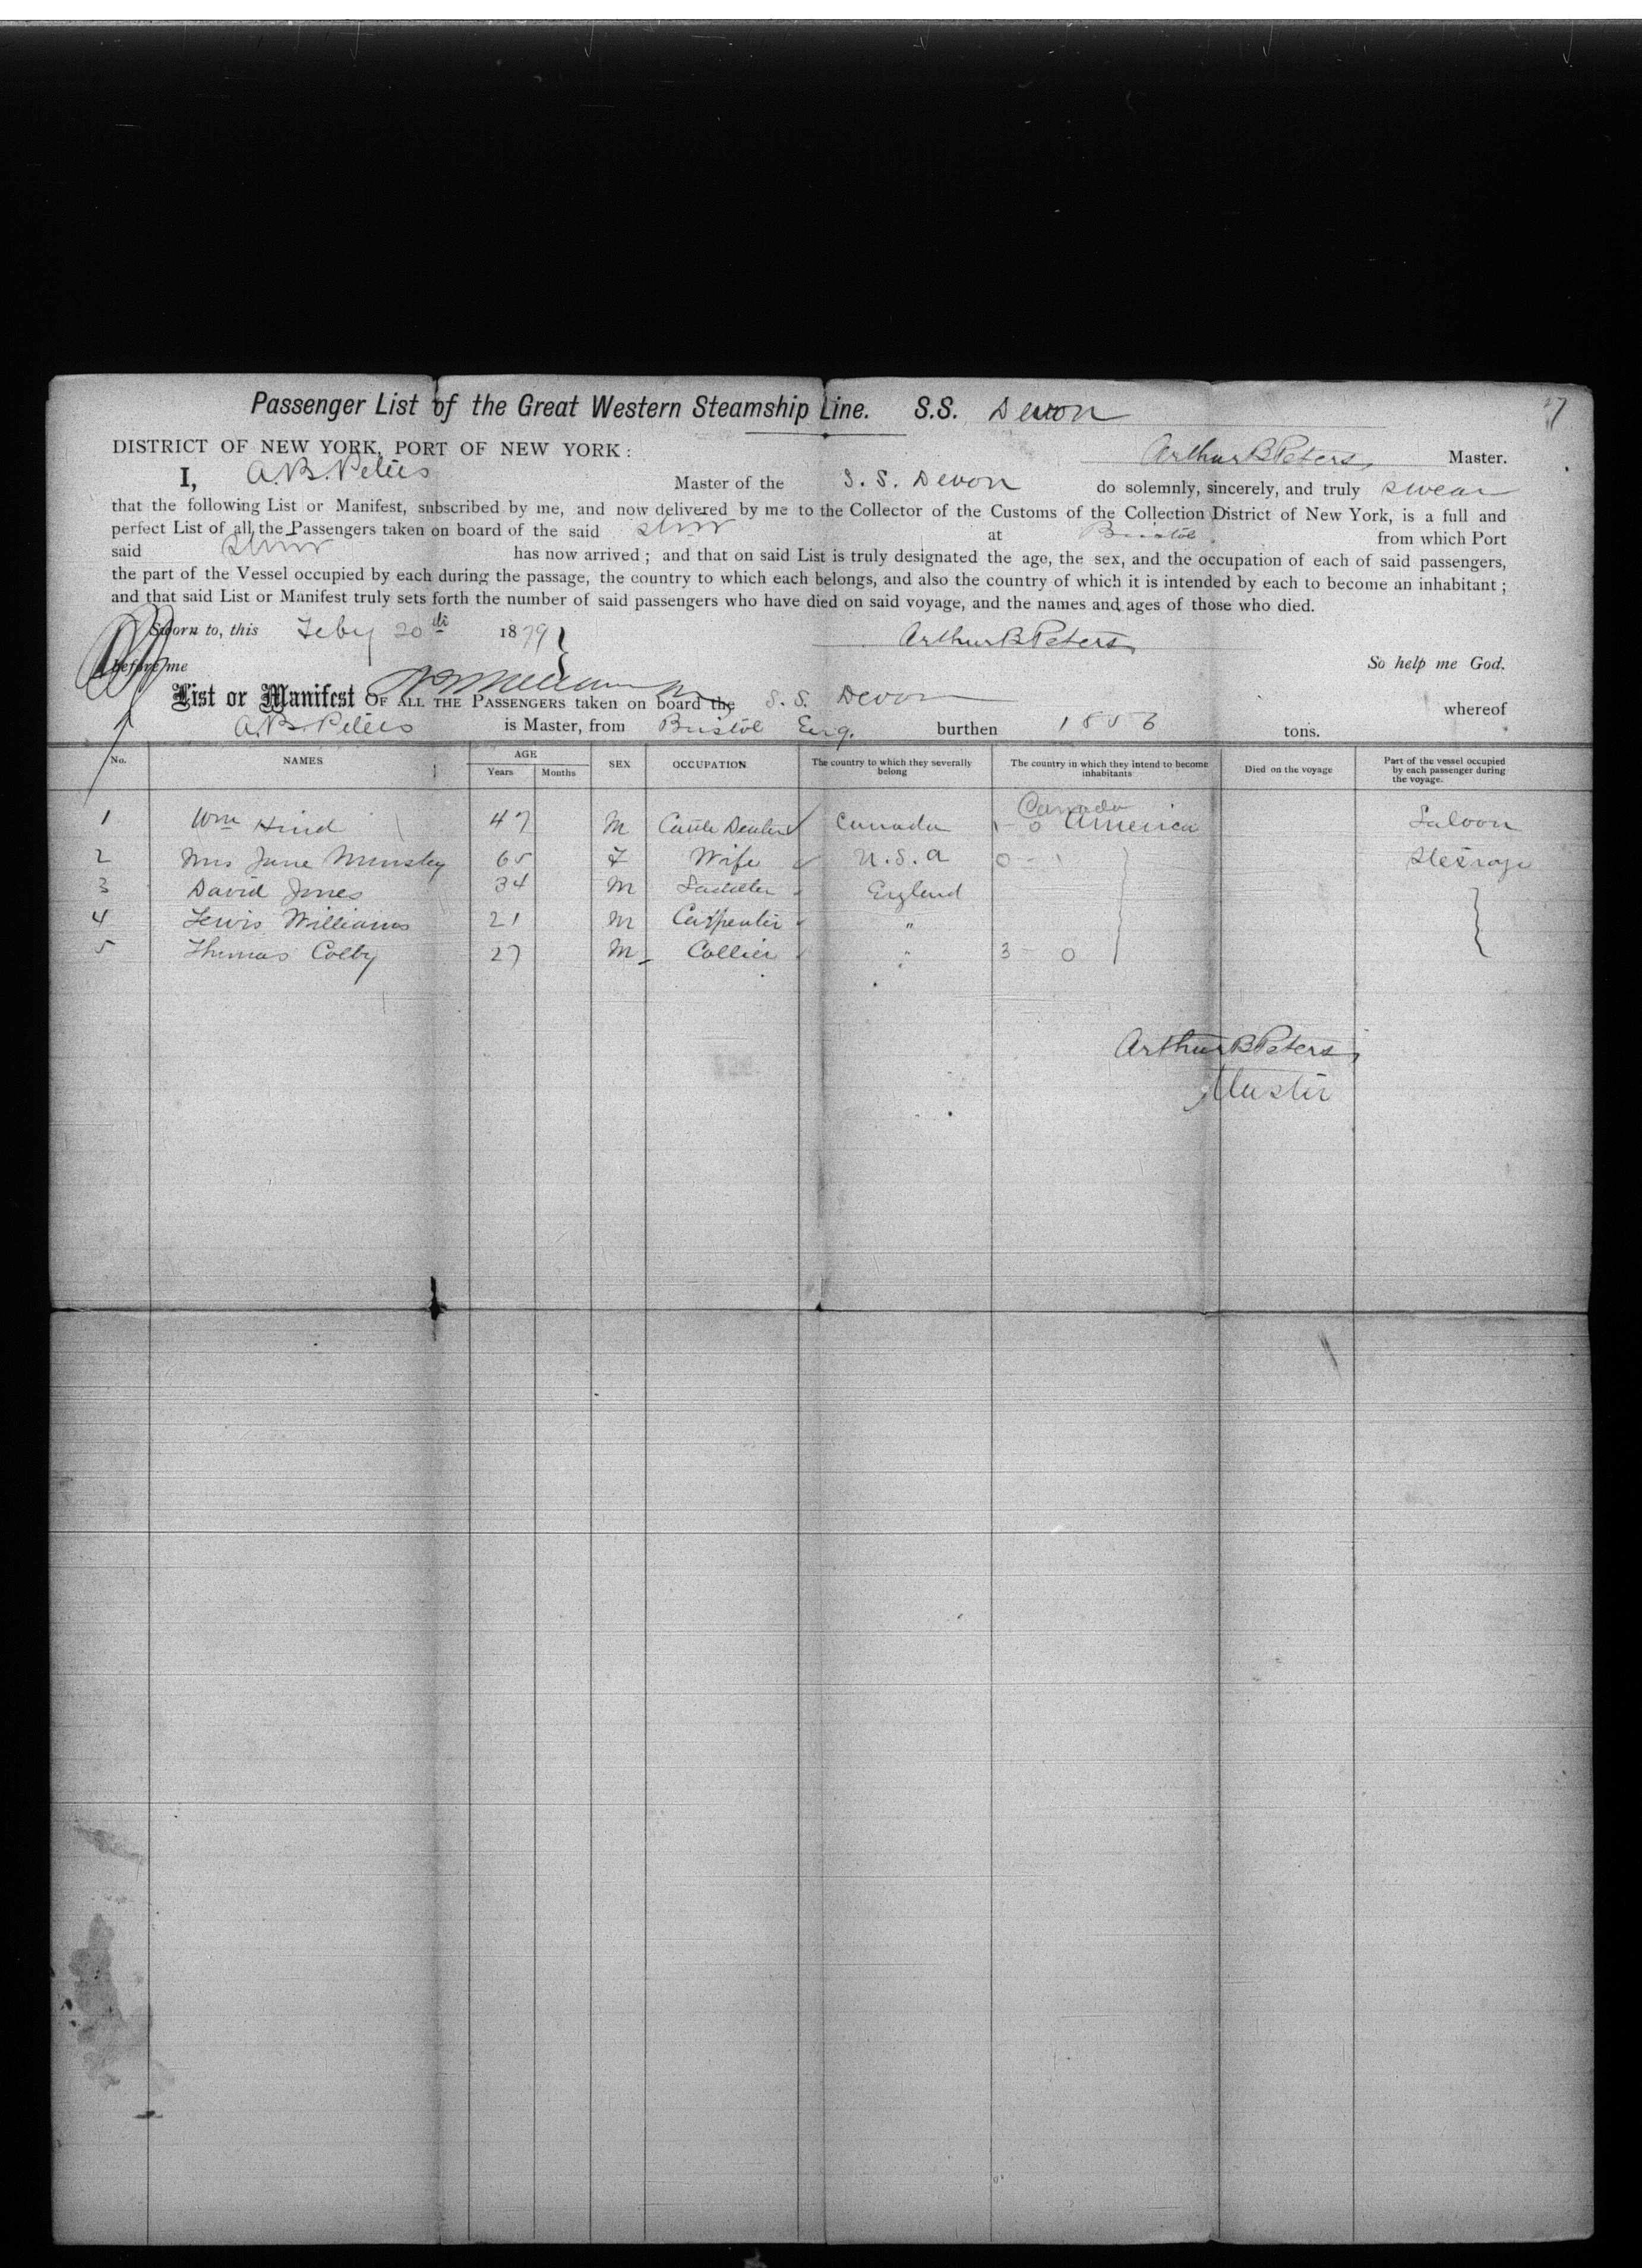 Passenger List of the Great Western Steamship Line. S.S. Devon
DISTRICT OF NEW YORK, PORT OF NEW YORK: Arthur B Peters, Master.
I, A. B. Peters Master of the S. S. Devon do solemnly, sincerely, and truly swear
that the following List or Manifest, subscribed by me, and now delivered by me to the Collector of the Customs of the Collection District of New York, is a full and
perfect List of all the Passengers taken on board of the said at Bristol from which Port
said has now arrived; and that on said List is truly designated the age, the sex, and the occupation of each of said passengers,
the part of the Vessel occupied by each during the passage, the country to which each belongs, and also the country of which it is intended by each to become an inhabitant;
and that said List or Manifest truly sets forth the number of said passengers who have died on said voyage, and the names and ages of those who died.
Sworn to, this Feby 20th 1879 Arthur B Peters
before me So help me God.
List or Manifest OF ALL THE PASSENGERS taken on board the S. S. Devon whereof
A. B. Peters is Master, from Bristol Eng. burthen 1856 tons.
No. NAMES AGE Years Months SEX OCCUPATION The country to which they severally belong The country in which they intend to become inhabitants Died on the voyage Part of the vessel occupied by each passenger during the voyage.
1 Wm Hind 47 M Cattle Dealer Canada Canada 1 - 0 America Saloon
2 Mrs Jane 65 F Wife U.S.A 0 - 1 Steerage
3 David Jones 34 M England
4 Lewis Williams 21 M Carpenter "
5 Thomas Colby 27 M Collier " 3 - 0
Arthur B Peters,
Master